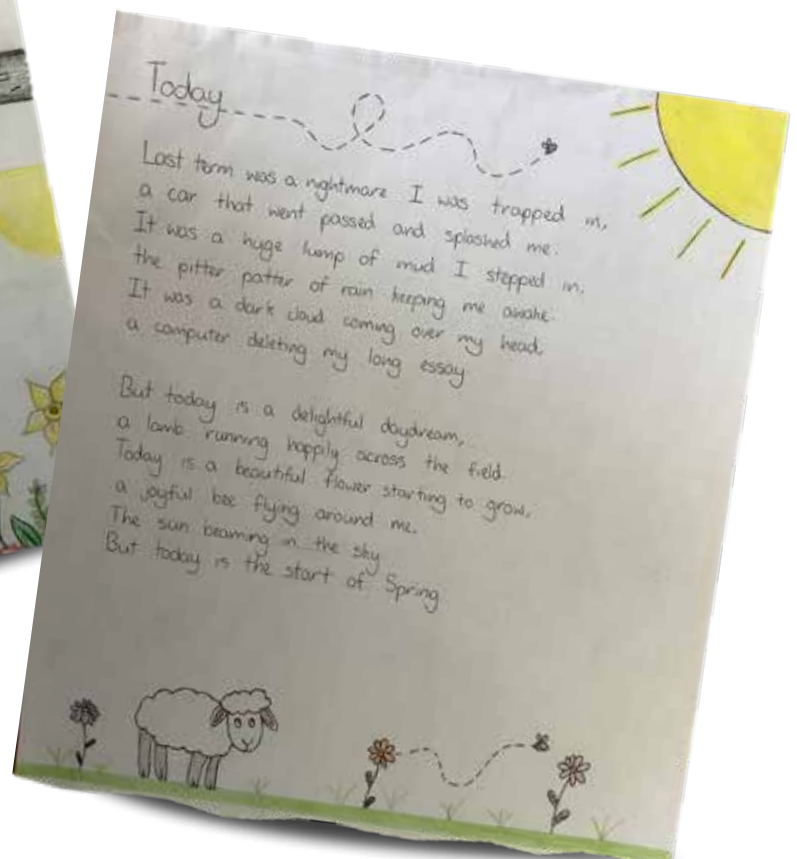 Today
Last term was a nightmare I was trapped in,
a car that went passed and splashed me.
It was a huge lump of mud I stepped in,
the pitter patter of rain keeping me awake.
It was a dark cloud coming over my head,
a computer deleting my long essay
But today is a delightful daydream,
a lamb running happily across the field.
Today is a beautiful flower starting to grow,
a joyful bee flying around me.
The sun beaming in the sky
But today is the start of Spring